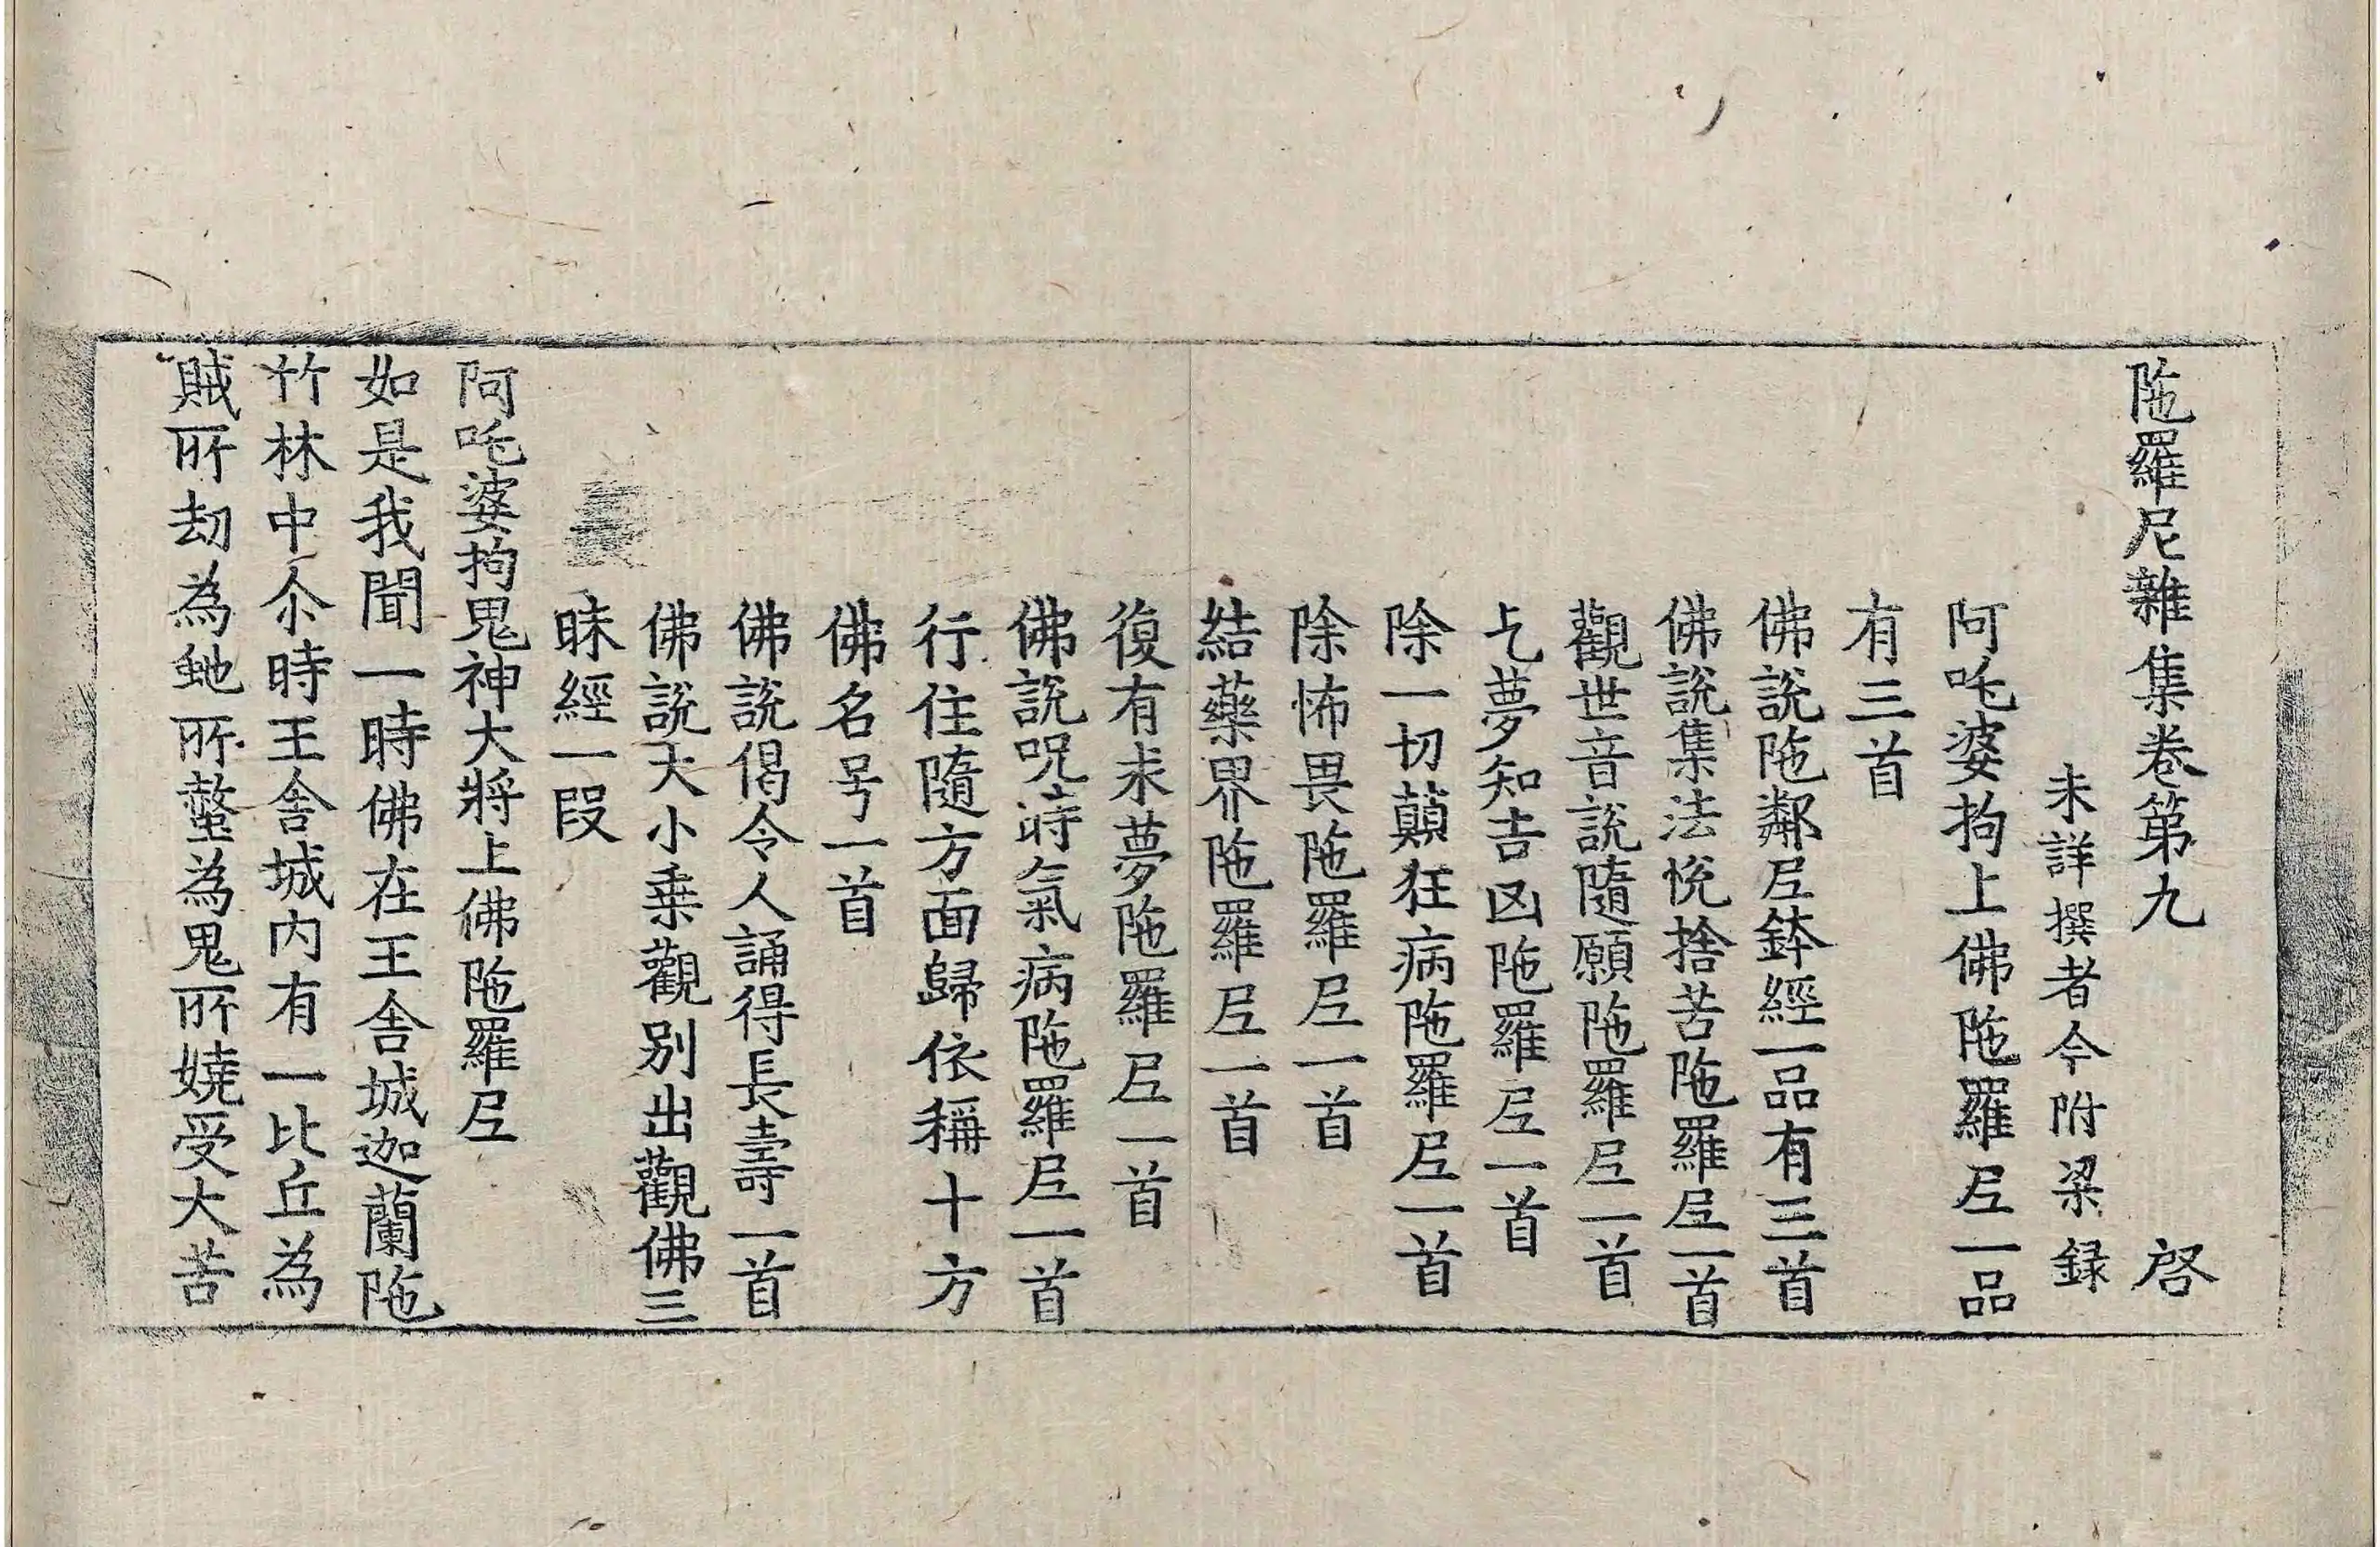 陁羅尼雜集卷第九 啓
未詳撰者今附梁録
阿吒婆拘上佛陁羅𡰱一品
有三首
佛說陁鄰𡰱鉢經一品有三首
佛說集法悅捨苦陁羅𡰱一首
觀世音說隨願陁羅𡰱一首
乞夢知吉凶陁羅𡰱一首
除一切顛狂病陁羅𡰱一首
除怖畏陁羅𡰱一首
結藥界陁羅𡰱一首
復有求夢陁羅𡰱一首
佛說呪時氣病陁羅𡰱一首
行住隨方面歸依稱十方
佛名号一首
佛說偈令人誦得長壽一首
佛說大小乗觀別出觀佛三
昧經一段
阿吒婆拘鬼神大將上佛陁羅𡰱
如是我聞一時佛在王舍城迦蘭陁
竹林中尒時王舍城內有一比丘為
賊所劫為虵所螫為鬼所嬈受大苦